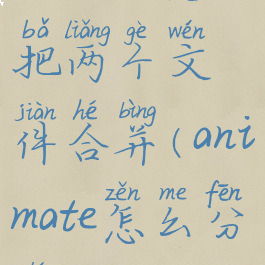 bǎ liǎng gè wén
把两个文
jiàn hé bìng
件合并(ani
zěn me fēn
mate怎么分